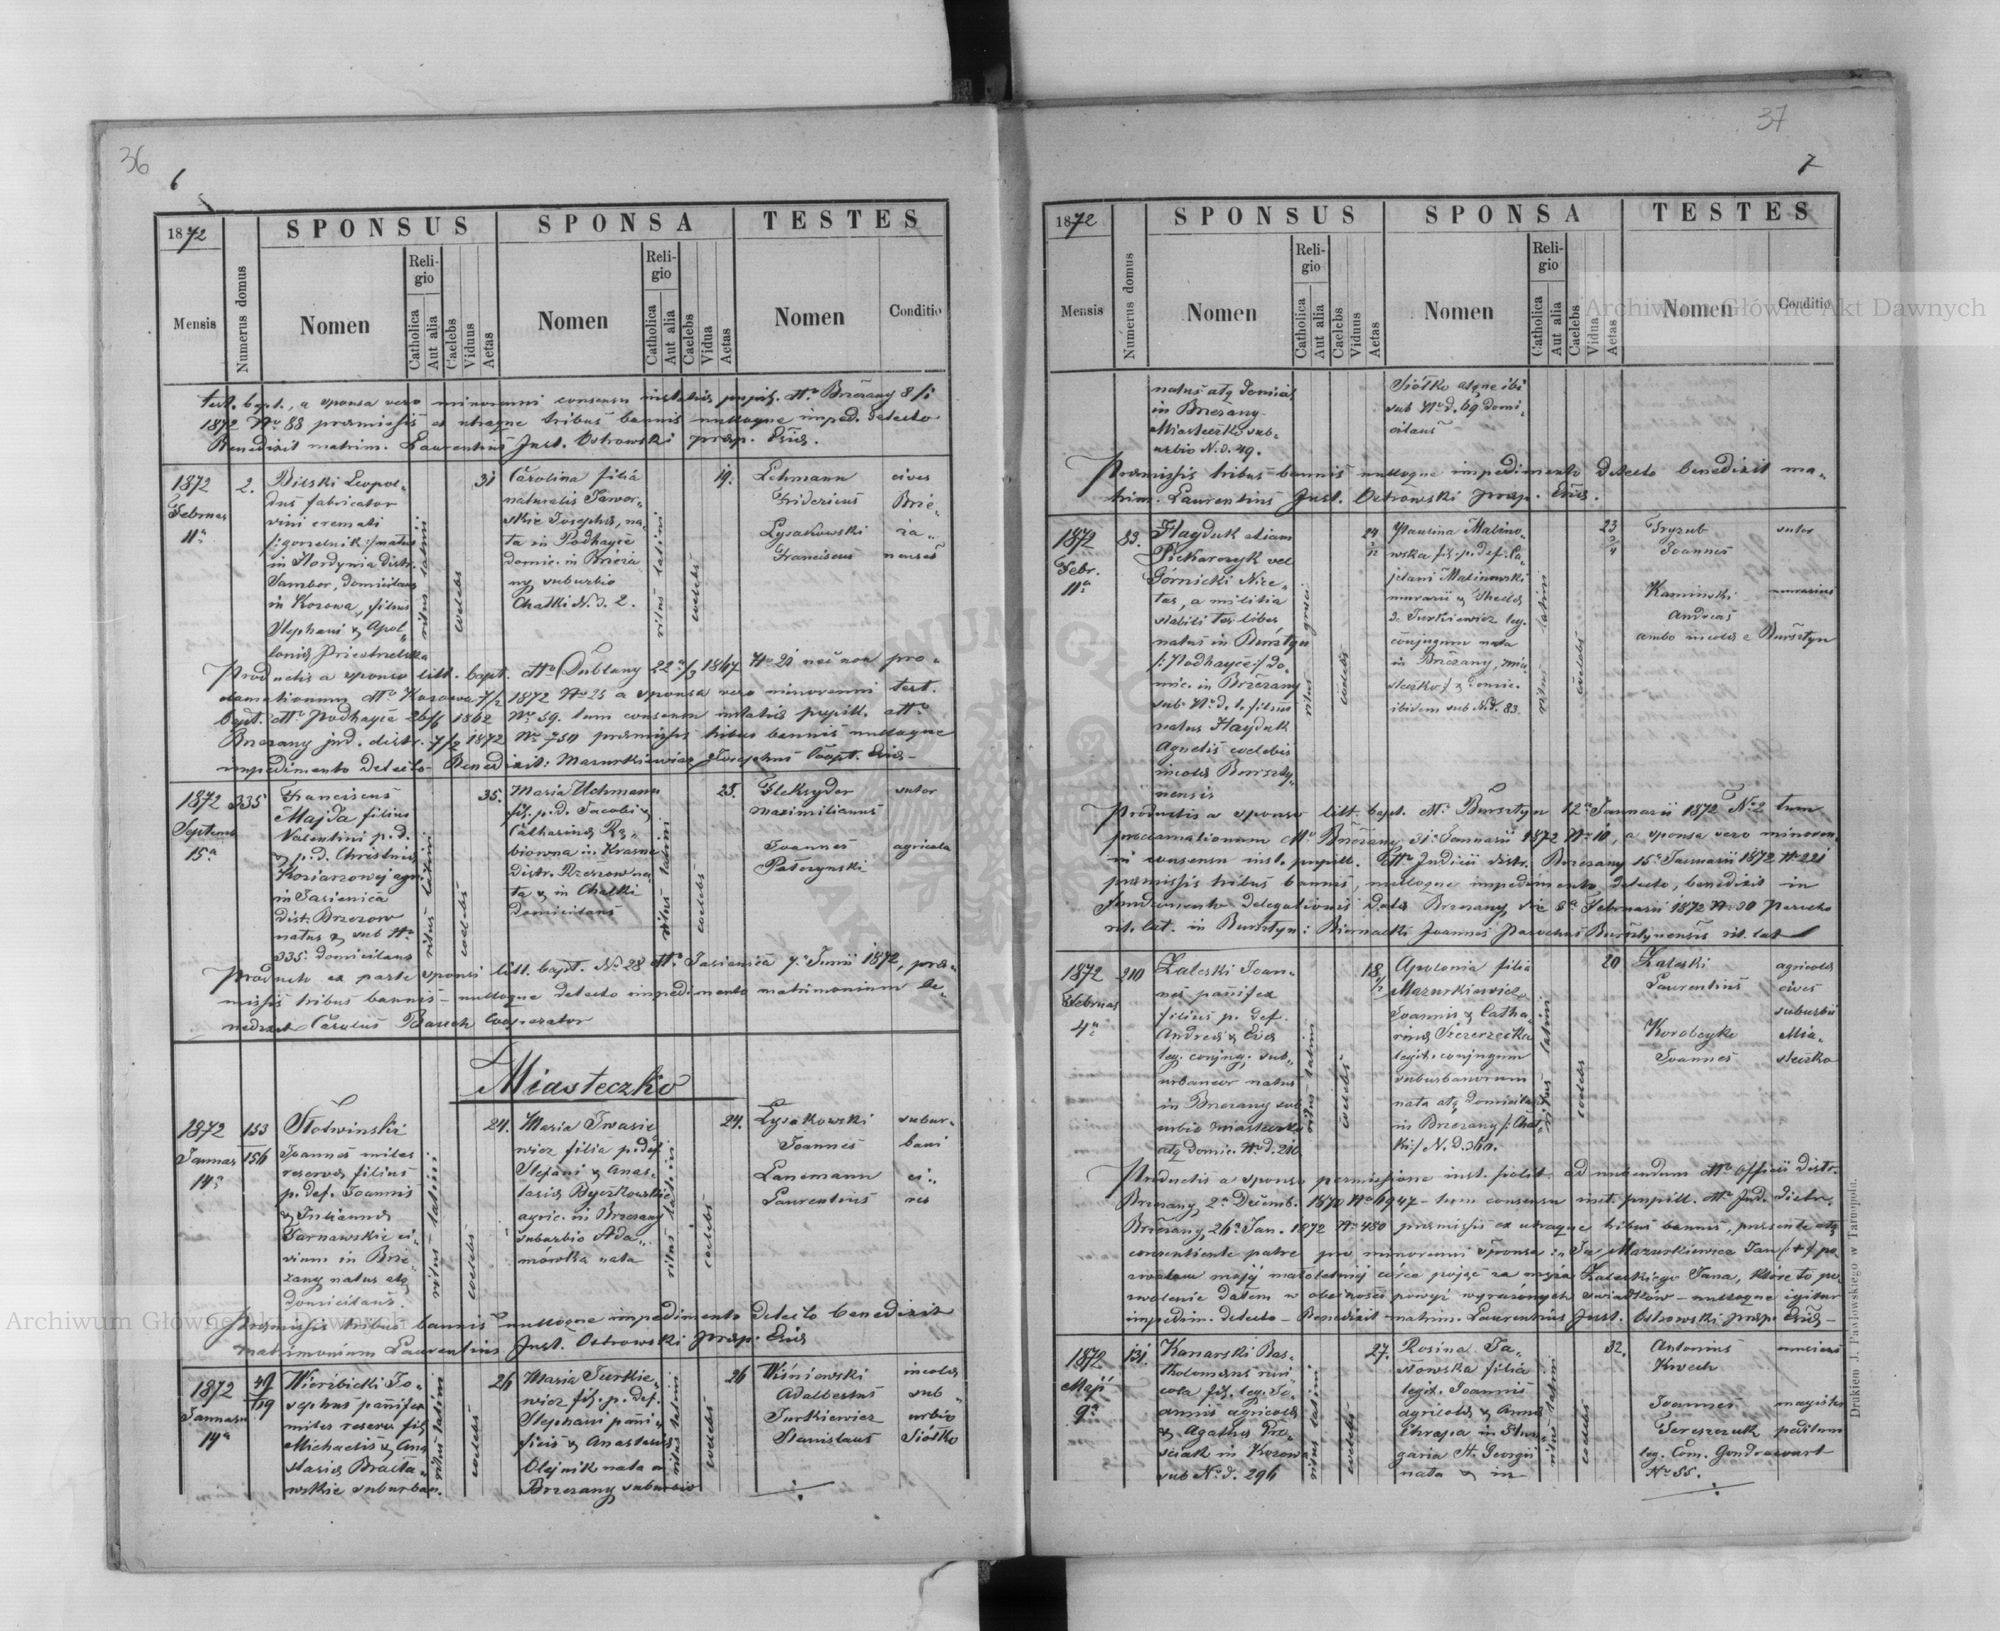 36
6
1872
SPONSUS SPONSA TESTES
Mensis
Numerus domus
Nomen
Religio
Catholica
Aut alia
Caelebs
Viduus
Aetas
Nomen
Religio
Catholica
Aut alia
Caelebs
Vidua
Aetas
Nomen
Conditio
1872 Nr 88 præmissis ex utraque tribus bannis nulloque imped. detecto
Benedixit matrim. Laurentius Just. Ostrowski præp. Eccl.
1872
Februar
11a
2.
Bilski Leopol-
dus fabricator
vini cremati
/:gorzelnik:/ natus
in Hordynia distr.
Sambor, domicilians
in Kozowa, filius
Stephani & Apol-
ritus latini
coelebs
31
Carolina filia
naturalis Jawor-
skie Josepha, na-
ta in Podhayce
domic. in Brzeża
ny suburbio
Chatki N. d. 2.
ritus latini
coelebs
19.
Lehmann
Fridericus
Lysakowski
Franciscus
cives
Brze-
ża-
nenses
Productis a sponso litt. bapt. dto Dublany 22a/3 1867 No 21 nec non pro-
clamationum dto Kozowa 7/2 1872 No 25 a sponsa vero minorenni test.
bapt. dto Podhayce 26/6 1862 No 59. tum consensu instatis pupill. dto
Brzezany jud. distr. 7/2 1872 No 750 præmissis tribus bannis nulloque
impedimento detecto Benedixit: Mazurkiewicz Josephus Coopt. Eccl.
1872
Septemb
15a
335
Franciscus
Majda filius
Valentini p. d.
& p. d. Christinæ
Koziarzowej agri.
in Jasienica
distr. Brzozow
natus & sub No
335. domicilians
ritus latini
coelebs
35.
Maria Uchmann
fil. p. d. Jacobi &
Catharinæ Rz-
biowna in Krasne
distr. Rzeszow na-
ta & in Chatki
domicilians
ritus latini
coelebs
23.
Fleksyder
Maximilianus
Joannes
Patszynski
sutor
agricola
Producto ex parte sponsi litt. bapt. No 28 dto Jasienica 7a Junii 1872, præ-
missis tribus bannis nulloque detecto impedimento matrimonium be-
nedixit Carolus Barich Cooperator
Miasteczko
1872
Januar
14a
153
156
Słotwinski
Joannes miles
reservæ filius
p. def. Joannis
& Juliannæ
Tarnawskie ci-
vium in Brze-
zany natus atq
domicilians.
ritus latini
coelebs
24.
Maria Iwasie
wicz filia p. def
Stefani & Anas-
tasiæ Byczkowskie
agric. in Brzezany
suburbio Ada-
mówka nata
ritus latini
coelebs
24.
Lysakowski
Joannes
Lanemann
Laurentius
subur-
bani
ci-
ves
Præmissis tribus bannis nulloque impedimento detecto benedixit
matrimonium Laurentius Just. Ostrowski præp. Eccl.
1872
Januar
14a
49
119
Wierzbicki Jo-
sephus pannifex
miles reserv. fil.
Michaelis & Ana
stasiæ Bracła-
wskie suburban.
ritus latini
coelebs
26
Maria Turkie-
wicz fil. p. def.
Stephani panni-
ficis & Anastasiæ
Olejnik nata a
Brzezany suburbio
ritus latini
coelebs
26
Wiśniowski
Adalbertus
Turkiewicz
Stanislaus
incolæ
sub
urbio
Siołko
37
7
1872
SPONSUS SPONSA TESTES
Mensis
Numerus domus
Nomen
Religio
Catholica
Aut alia
Caelebs
Viduus
Aetas
Nomen
Religio
Catholica
Aut alia
Caelebs
Vidua
Aetas
Nomen
Conditio
natus atq domici.
in Brzezany
Miasteczko sub-
urbio N. d. 49.
Siołko atque ibi
sub No d. 69 domi-
cilans
Præmissis tribus bannis nulloque impedimento detecto benedixit ma-
trim. Laurentius Just. Ostrowski præp. Eccl.
1872
Febr.
11a
83.
Hayduk etiam
Piekarczyk vel
Górnicki Nice-
tas, a militia
stabili tes liber
natus in Bursztyn
/:Podhayce:/ do-
mic. in Brzezany
sub No d. 1. filius
natus Hayduk
Agnetis coelebis
incolæ Burszty-
nensis
ritus græci
coelebs
24
Paulina Malino-
wska fil. p. def. Ca-
jetani Malinowski
murarii & Theclæ
de Turkiewicz leg.
conjugum nata
in Brzezany, mia
steczko/ & domic.
ibidem sub N. d. 83.
ritus latini
coelebs
23
Tryzub
Joannes
Kaminski
Andreas
ambo incolæ e Bursztyn
sutor
murarius
Productis a sponso litt. bapt. dto Bursztyn 12a Januarii 1872 No 2 tum
proclamationum dto Brzezany 31a Januarii 1872 No 10, a sponsa vero minoren-
ni consensu inst. pupill. dto Judicii distr. Brzezany 15a Januarii 1872 No 221
præmissis tribus bannis, nulloque impedimento, detecto, benedixit in
fundamento delegationis datæ Brzezany die 8a Februarii 1872 No 30 Parocho
rit. lat. in Bursztyn: Biernacki Joannes Parochus Bursztynensis rit. lat
1872
Februar
4a
210
Zaleski Joan-
nes pannifex
filius p. def.
Andreæ & Evæ
leg. conjug. sub-
urbaneor natus
in Brzezany sub
urbio Miasteczko
atq domic. No d. 210
ritus latini
coelebs
18
Apolonia filia
Mazurkiewicz
Joannis & Catha-
rinæ Szczerzecka
legit. conjugum
suburbanorum
nata atq domicilans
in Brzezany /:Chat-
ki:/ N. d. 360.
ritus latini
coelebs
20
Zaleski
Laurentius
Korobczyk
Joannes
agricolæ
cives
suburbii
Mia-
steczko
Productis a sponso permissione inst. polit. ad nubendum dto Officii distr.
Brzezany 2a Decemb. 1870 No 6947 - tum consensu inst. pupill. dto Jud. distr.
Brzezany 26a Jan. 1872 No 480 præmissis ex utraque tribus bannis, præsente atq
consentiente patre pro minorenni sponsa: "Ja Mazurkiewicz Jan /:+:/ po-
zwalam mojéj małoletniéj córce pojąć za męża Zaleskiego Jana, które to po-
zwolenie dałem w obecności powyż wyrażonych świadków - nulloque igitur
impedim. detecto - Benedixit matrim. Laurentius Just. Ostrowski præp. Eccl.
1872
Maji
9a
131.
Kanarski Bar-
tholomæus ruri
cola fil. leg. Jo-
annis agricolæ
& Agathæ Pro-
sciak in Kozow
sub No d. 296
ritus latini
coelebs
27.
Rosina Ja-
nowska filia
legit. Joannis
agricolæ & Annæ
Chrapa in Hun-
garia St. Georgii
nata & in
ritus latini
coelebs
32.
Antonius
Kwech
Joannes
Tereszczuk
leg. Com. Gendracourt
No 55.
magister
peditum
Drukiem J. Pawłowskiego w Tarnopolu.
Archiwum Główne Akt Dawnych
Archiwum Główne Akt Dawnych